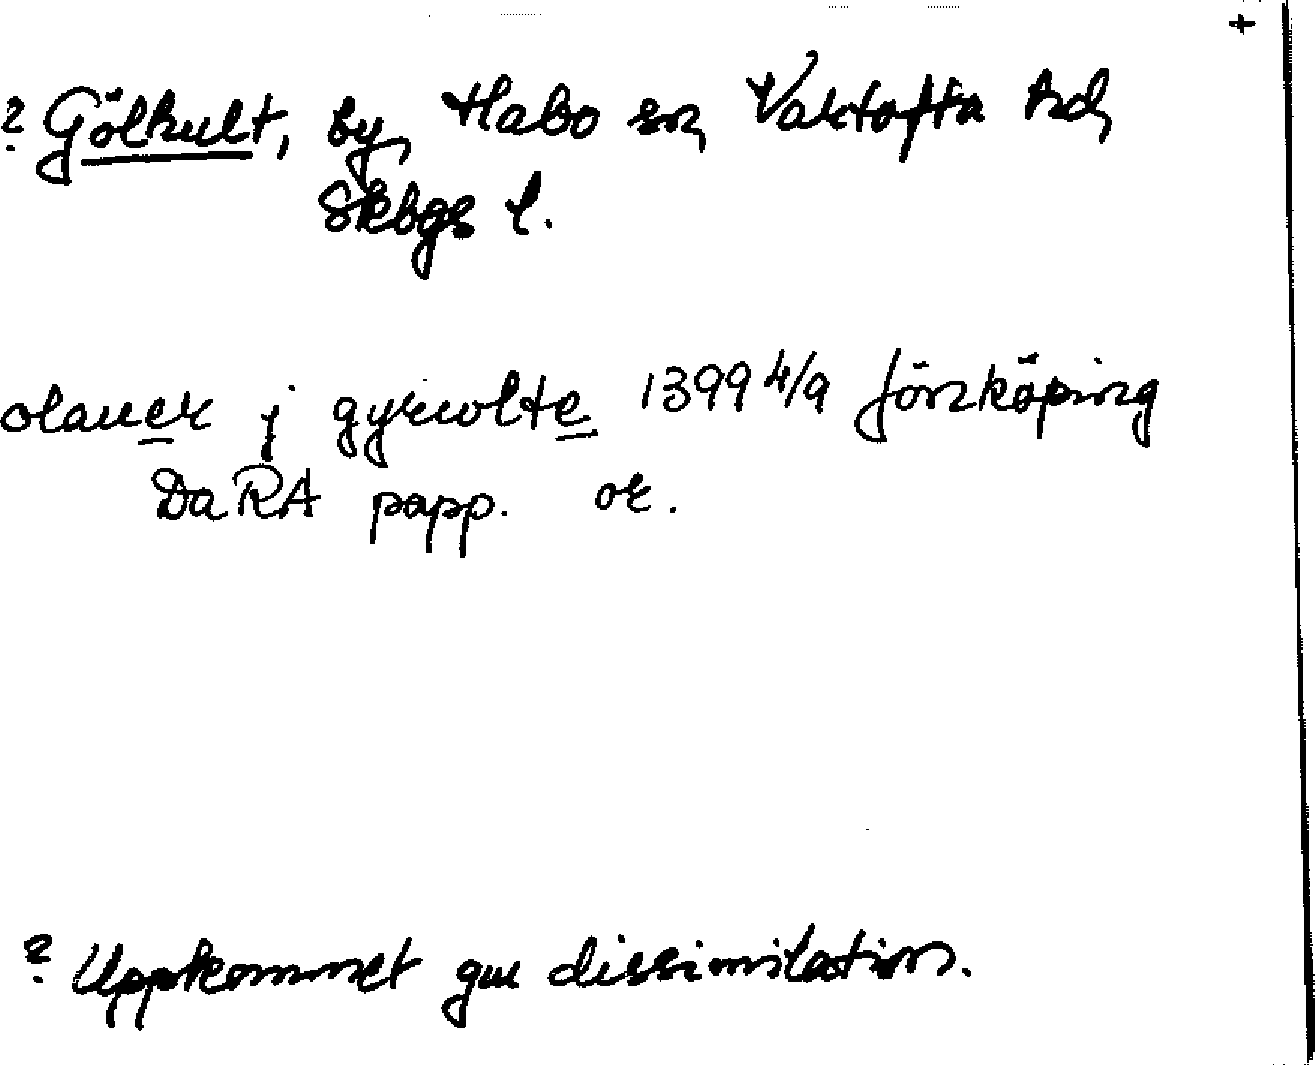 +
? Gölhult, by, Habo sn, Vartofta hd,
Skbgs l.
olauer j gyrwlte 1399 4/9 Jönköping
DaRA papp. or.
? Uppkommet gm dissimilation.